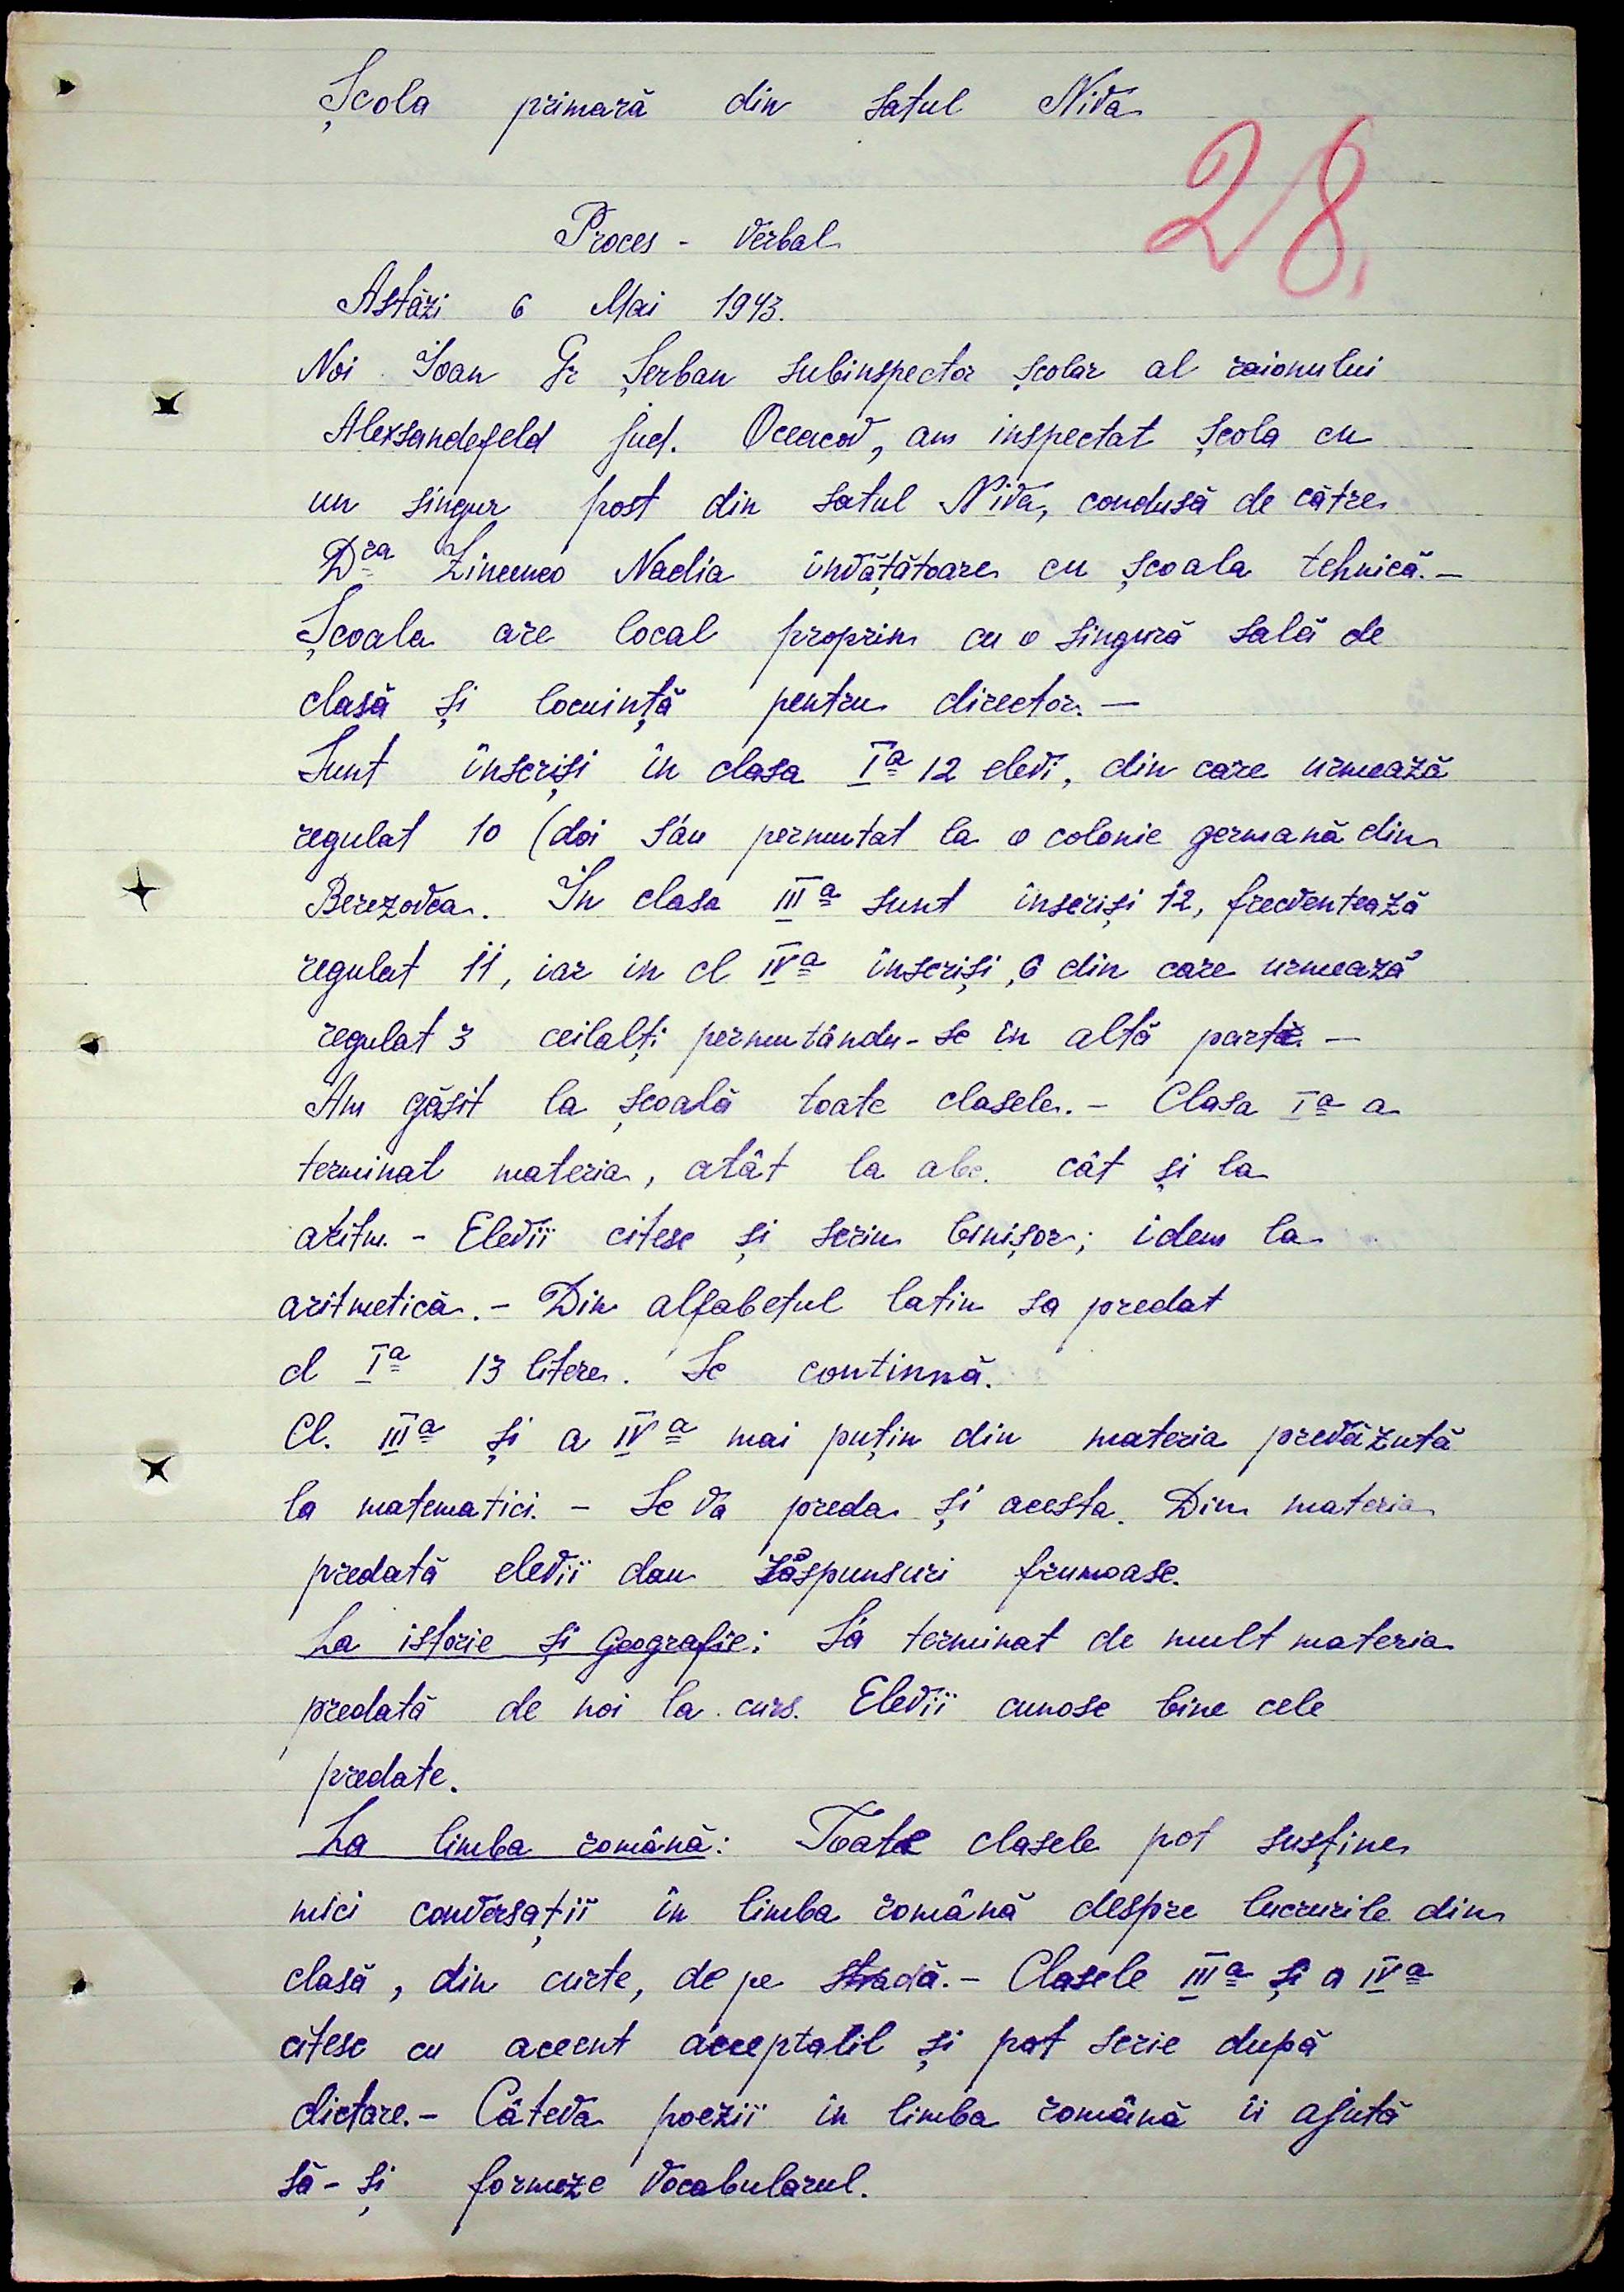 Școla primară din satul Niva
28.
Proces - verbal
Astăzi 6 Mai 1943.
Noi Ioan Gr Șerban subinspector școlar al raionului
Alexsandefeld jud. Oceacov, am inspectat școla cu
un singur post din satul Niva, condusă de către
D^ra Zinenco Nadia învățătoare cu școala tehnică. —
Școala are local propriu cu o singură sală de
clasă și locuință pentru director. —
Sunt înscriși în clasa I^a 12 elevi, din care urmează
regulat 10 (doi s'au permutat la o colonie germană din
Berezovca. In clasa III^a sunt înscriși 12, frecventează
regulat 11, iar in cl IV^a înscriși, 6 din care urmează
regulat 3 ceilalți permutându-se în altă parte. —
Am găsit la școală toate clasele. - Clasa I^a a
terminat materia, atât la abc. cât și la
aritm. - Elevii citesc și scriu binișor; idem la
aritmetică. - Din alfabetul latin sa predat
cl I^a 13 litere. Se continuă.
Cl. III^a și a IV^a mai puțin din materia prevăzută
la matematici. - Se va preda și acesta. Din materia
predată elevii dau răspunsuri frumoase.
La istorie și geografie: S'a terminat de mult materia
predată de noi la curs. Elevii cunosc bine cele
predate.
La limba română: Toate clasele pot susține
mici conversații în limba română despre lucrurile din
clasă, din curte, de pe stradă. - Clasele III^a și a IV^a
citesc cu accent acceptabil și pot scrie după
dictare. - Câteva poezii in limba română îi ajută
să-și formeze vocabularul.